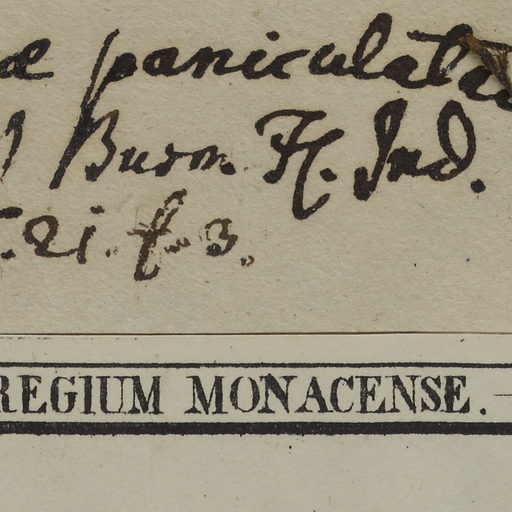 æ paniculata
Burm. Fl. Ind.
t. 21. f. 3.
REGIUM MONACENSE.